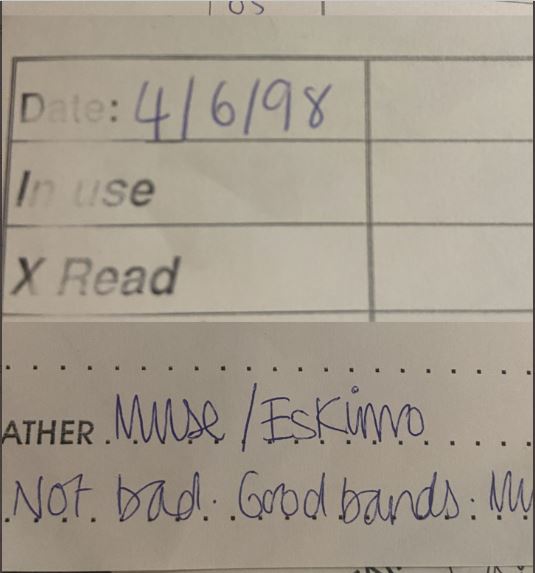 Date: 4/6/98
In use
X Read
ATHER Muse / Eskimo
Not bad. Good bands. Mu